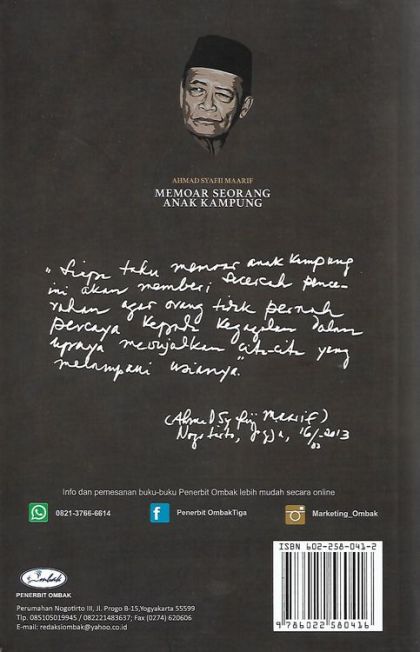 AHMAD SYAFII MAARIF
MEMOAR SEORANG
ANAK KAMPUNG
"Siapa tahu memoar anak kampung
ini akan memberi secercah pence-
rahan agar orang tidak pernah
percaya kepada kegagalan dalam
upaya mewujudkan cita-cita yang
melampaui usianya."
(Ahmad Syafii Maarif)
Nogotirto, Jogja, 16/02-2013
Info dan pemesanan buku-buku Penerbit Ombak lebih mudah secara online
0821-3766-6614
Penerbit OmbakTiga
Marketing_Ombak
ISBN 602-258-041-2
9 786022 580416
Ombak
PENERBIT OMBAK
Perumahan Nogotirto III, Jl. Progo B-15,Yogyakarta 55599
Tlp. 085105019945 / 082221483637; Fax (0274) 620606
E-mail: redaksiombak@yahoo.co.id